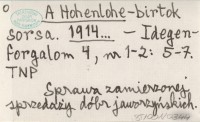 0 A Hohenlohe-birtok
sorsa. 1914... – Idegen-
forgalom 4, nr 1-2: 5-7.
TNP
Sprawa zamierzonej
sprzedaży dóbr jaworzyńskich.